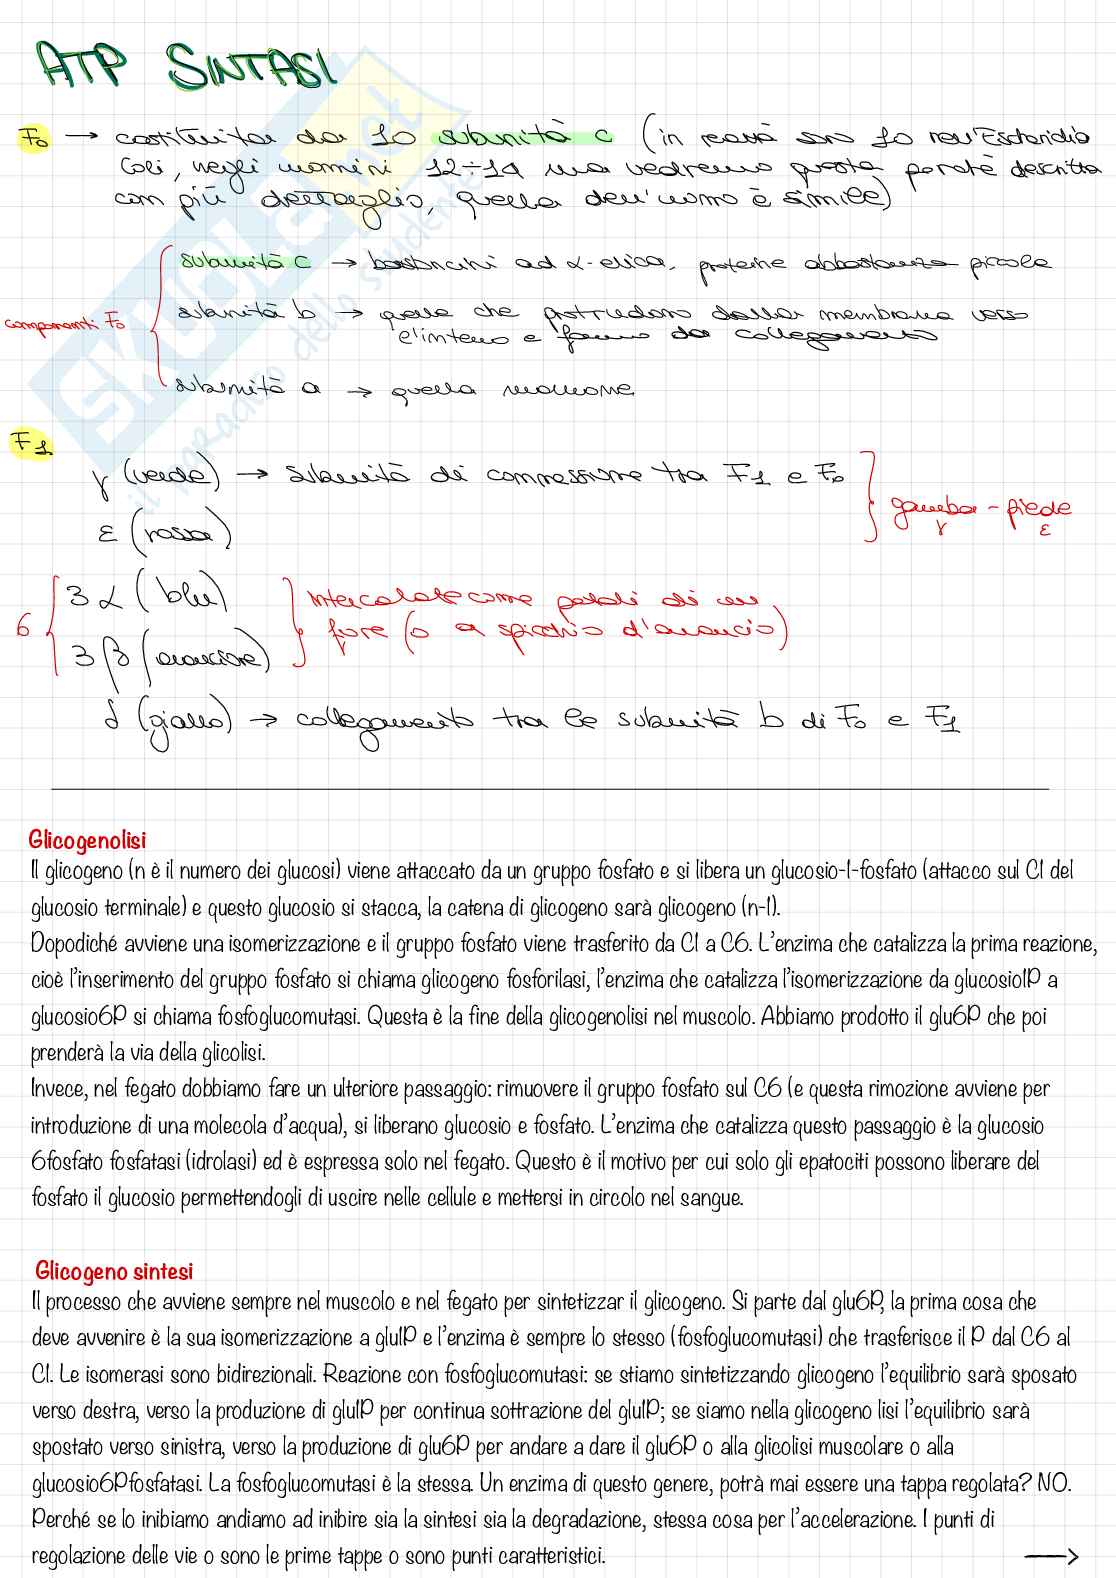 ATP SINTASI
F₀ → costituita da 10 subunità c (in realtà sono 10 nell'Escherichia
Coli, negli uomini 12÷14 ma vedremo questa perché descritta
con più dettaglio, quella dell'uomo è simile)
subunità c → bastoncini ad α-elica, proteine abbastanza piccole
componenti F₀
subunità b → quelle che protrudono dalla membrana verso
l'interno e fanno da collegamento
subunità a → quella marrone
F₁
γ (verde) → subunità di connessione tra F₁ e F₀
gamba - piede
γ ε
ε (rossa)
6
3 α (blu)
3 β (arancione)
Intercalate come petali di un
fiore (o a spicchio d'arancio)
δ (giallo) → collegamento tra le subunità b di F₀ e F₁
Glicogenolisi
Il glicogeno (n è il numero dei glucosi) viene attaccato da un gruppo fosfato e si libera un glucosio-1-fosfato (attacco sul C1 del
glucosio terminale) e questo glucosio si stacca, la catena di glicogeno sarà glicogeno (n-1).
Dopodiché avviene una isomerizzazione e il gruppo fosfato viene trasferito da C1 a C6. L'enzima che catalizza la prima reazione,
cioè l'inserimento del gruppo fosfato si chiama glicogeno fosforilasi, l'enzima che catalizza l'isomerizzazione da glucosio1P a
glucosio6P si chiama fosfoglucomutasi. Questa è la fine della glicogenolisi nel muscolo. Abbiamo prodotto il glu6P che poi
prenderà la via della glicolisi.
Invece, nel fegato dobbiamo fare un ulteriore passaggio: rimuovere il gruppo fosfato sul C6 (e questa rimozione avviene per
introduzione di una molecola d'acqua), si liberano glucosio e fosfato. L'enzima che catalizza questo passaggio è la glucosio
6fosfato fosfatasi (idrolasi) ed è espressa solo nel fegato. Questo è il motivo per cui solo gli epatociti possono liberare del
fosfato il glucosio permettendogli di uscire nelle cellule e mettersi in circolo nel sangue.
Glicogeno sintesi
Il processo che avviene sempre nel muscolo e nel fegato per sintetizzar il glicogeno. Si parte dal glu6P, la prima cosa che
deve avvenire è la sua isomerizzazione a glu1P e l'enzima è sempre lo stesso (fosfoglucomutasi) che trasferisce il P dal C6 al
C1. Le isomerasi sono bidirezionali. Reazione con fosfoglucomutasi: se stiamo sintetizzando glicogeno l'equilibrio sarà sposato
verso destra, verso la produzione di glu1P per continua sottrazione del glu1P; se siamo nella glicogeno lisi l'equilibrio sarà
spostato verso sinistra, verso la produzione di glu6P per andare a dare il glu6P o alla glicolisi muscolare o alla
glucosio6Pfosfatasi. La fosfoglucomutasi è la stessa. Un enzima di questo genere, potrà mai essere una tappa regolata? NO.
Perché se lo inibiamo andiamo ad inibire sia la sintesi sia la degradazione, stessa cosa per l'accelerazione. I punti di
regolazione delle vie o sono le prime tappe o sono punti caratteristici. →
SKUOLA.net
il paradiso dello studente